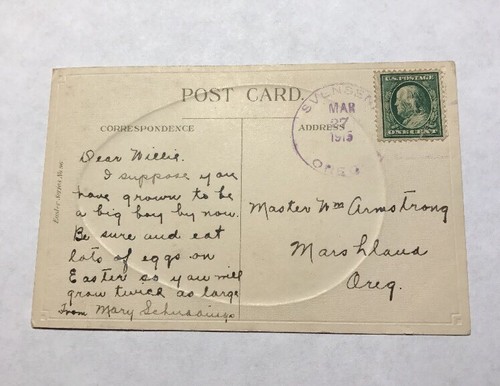 POST CARD.
CORRESPONDENCE
ADDRESS
Dear Willie.
I suppose you
have grown to be
a big boy by now.
Be sure and eat
lots of eggs on
Easter so you will
grow twice as large
From Mary
Master Wm Armstrong
Marshland
Oreg.
SVENSEN
MAR
27
1915
OREG
U.S. POSTAGE
ONE CENT
Easter Series No.